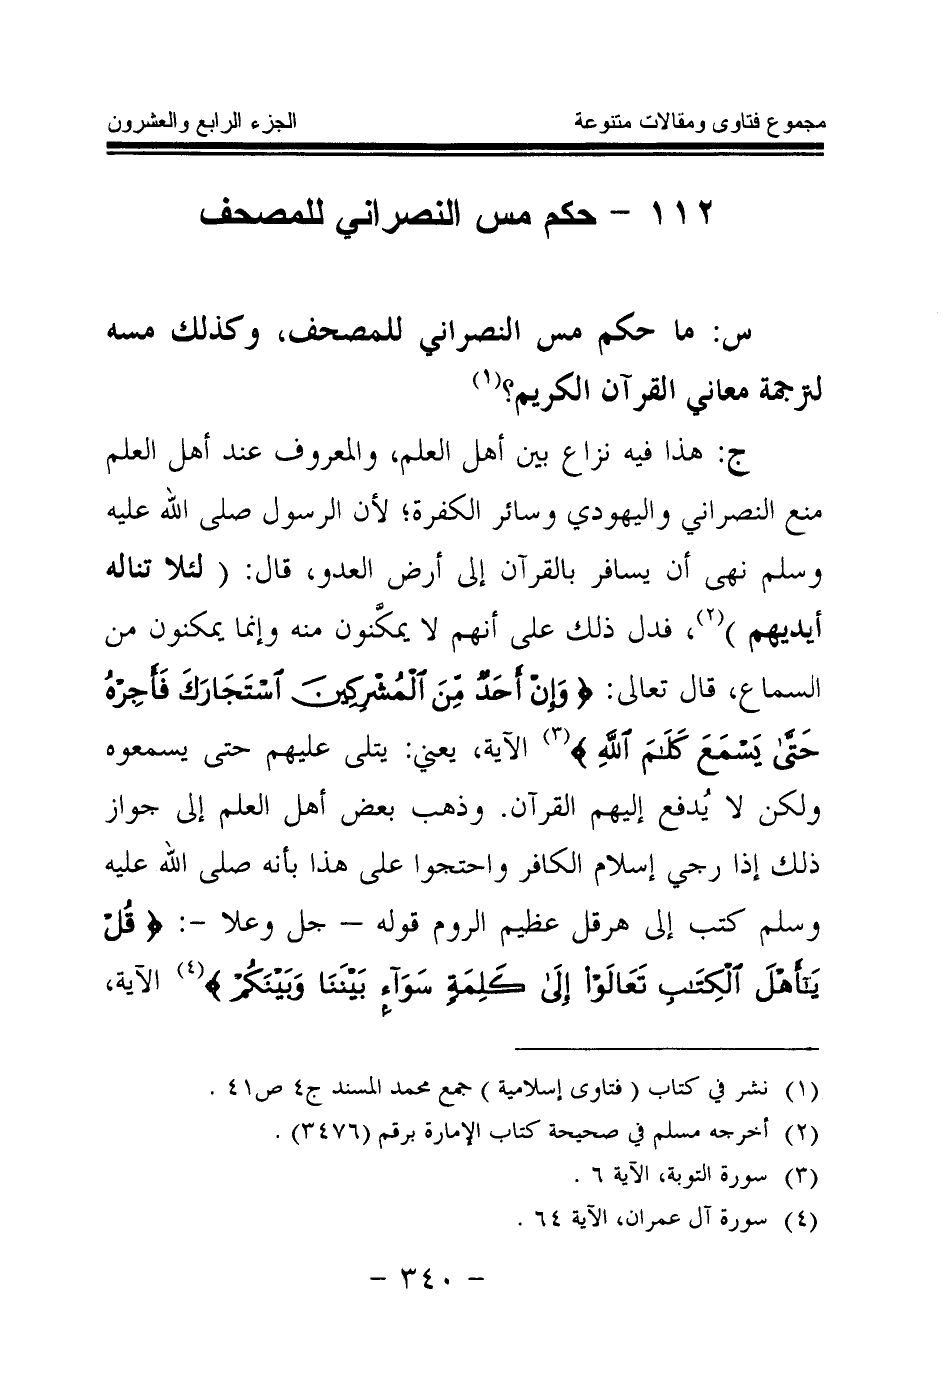 مجموع فتاوى ومقالات متنوعة الجزء الرابع والعشرون
١١٢ - حكم مس النصراني للمصحف
س: ما حكم مس النصراني للمصحف، وكذلك مسه
لترجمة معاني القرآن الكريم؟(١)
ج: هذا فيه نزاع بين أهل العلم، والمعروف عند أهل العلم
منع النصراني واليهودي وسائر الكفرة؛ لأن الرسول صلى الله عليه
وسلم نهى أن يسافر بالقرآن إلى أرض العدو، قال: ( لئلا تناله
أيديهم )(٢)، فدل ذلك على أنهم لا يمكَّنون منه وإنما يمكنون من
السماع، قال تعالى: ﴿ وَإِنْ أَحَدٌ مِّنَ ٱلْمُشْرِكِينَ ٱسْتَجَارَكَ فَأَجِرْهُ
حَتَّىٰ يَسْمَعَ كَلَـٰمَ ٱللَّهِ ﴾(٣) الآية، يعني: يتلى عليهم حتى يسمعوه
ولكن لا يُدفع إليهم القرآن. وذهب بعض أهل العلم إلى جواز
ذلك إذا رجي إسلام الكافر واحتجوا على هذا بأنه صلى الله عليه
وسلم كتب إلى هرقل عظيم الروم قوله – جل وعلا -: ﴿ قُلْ
يَـٰٓأَهْلَ ٱلْكِتَـٰبِ تَعَالَوْا۟ إِلَىٰ كَلِمَةٍ سَوَآءٍ بَيْنَنَا وَبَيْنَكُمْ ﴾(٤) الآية،
(١) نشر في كتاب ( فتاوى إسلامية ) جمع محمد المسند ج٤ ص٤١ .
(٢) أخرجه مسلم في صحيحة كتاب الإمارة برقم (٣٤٧٦) .
(٣) سورة التوبة، الآية ٦ .
(٤) سورة آل عمران، الآية ٦٤ .
- ٣٤٠ -